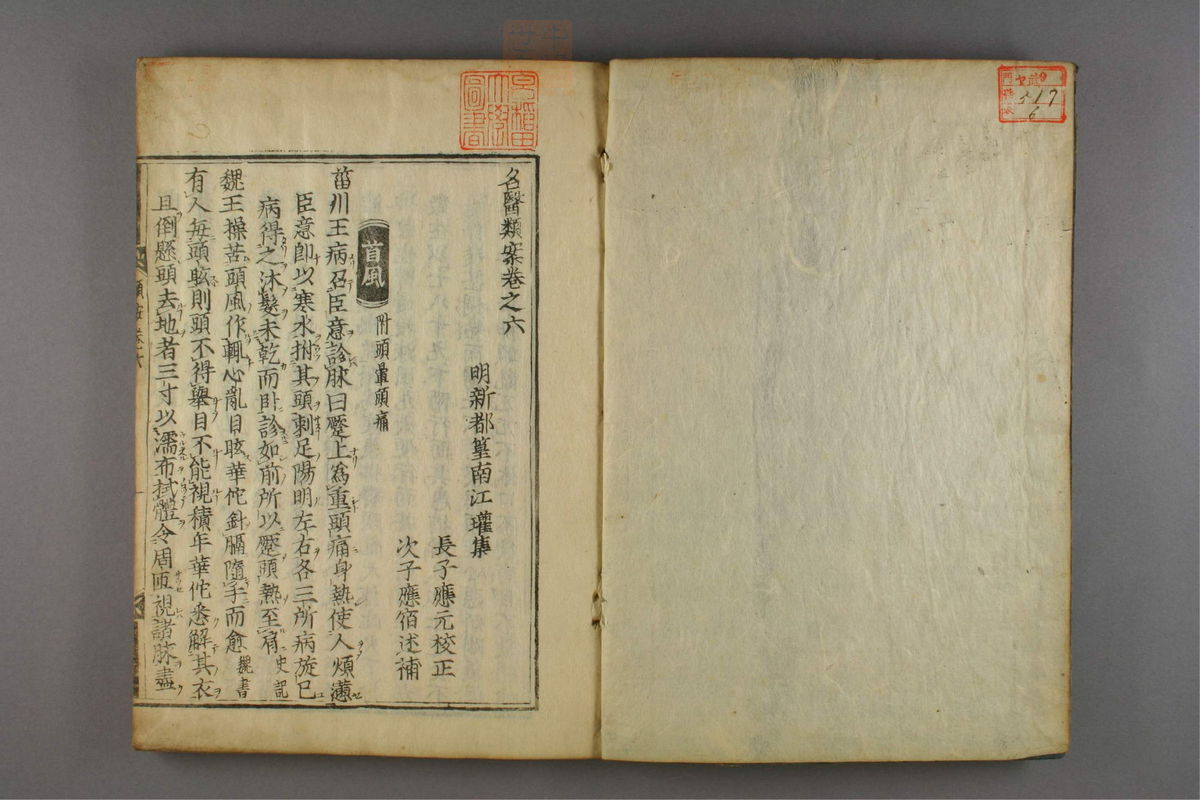 名醫類案卷之六
明新都篁南江瓘集
長子應元校正
次子應宿述補
首風 附頭暈頭痛
菑川王病召臣意診脉曰蹷上爲重頭痛身熱使人煩懣
臣意卽以寒水拊其頭刺足陽明左右各三所病旋已
病得之沐髮未乾而卧診如前所以蹷頭熱至肩 史記
魏王操苦頭風作輒心亂目眩華佗針膈隨手而愈 魏書
有人每頭眩則頭不得舉目不能視積年華佗悉解其衣
且倒懸頭去地者三寸以濡布拭體令周匝視諸脉盡
早稻田大學圖書
517
6